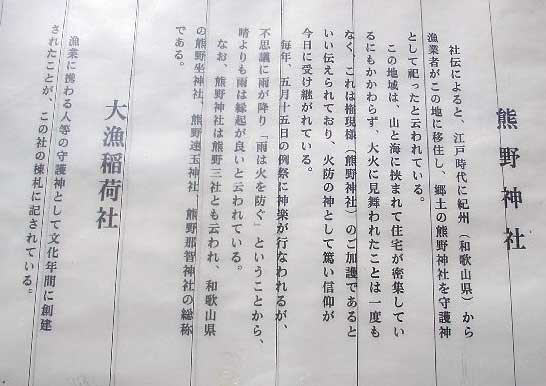 熊野神社
社伝によると、江戸時代に紀州（和歌山県）から
漁業者がこの地に移住し、郷土の熊野神社を守護神
として祀ったと云われている。
この地域は、山と海に挟まれて住宅が密集してい
るにもかかわらず、大火に見舞われたことは一度も
なく、これは権現様（熊野神社）のご加護であると
いい伝えられており、火防の神として篤い信仰が
今日に受け継がれている。
毎年、五月十五日の例祭に神楽が行なわれるが、
不思議に雨が降り「雨は火を防ぐ」ということから、
晴よりも雨は縁起が良いと云われている。
なお、熊野神社は熊野三社とも云われ、和歌山県
の熊野坐神社、熊野速玉神社　熊野那智神社の総称
である。
大漁稲荷社
漁業に携わる人等の守護神として文化年間に創建
されたことが、この社の棟札に記されている。